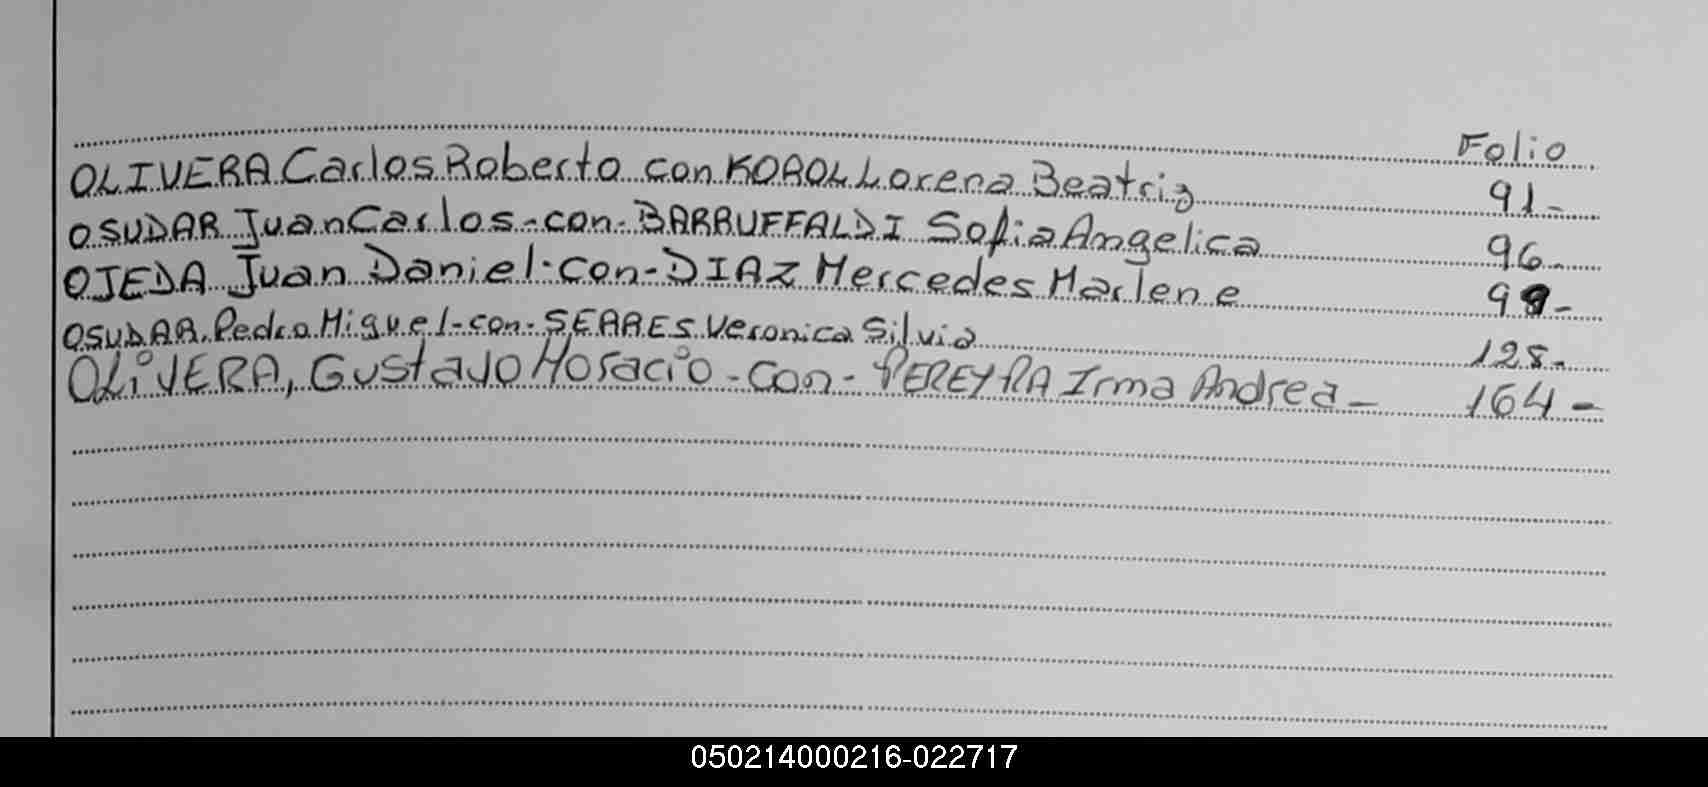 Folio
OLIVERA Carlos Roberto con KOROL Lorena Beatriz 91-
OSUDAR Juan Carlos - con - BARRUFFALDI Sofia Angelica 96-
OJEDA Juan Daniel - con - DIAZ Mercedes Marlene 99-
OSUDAR, Pedro Miguel - con - SEARES Veronica Silvia 128-
OLIVERA, Gustavo Horacio - con - PEREYRA Irma Andrea - 164-
050214000216-022717